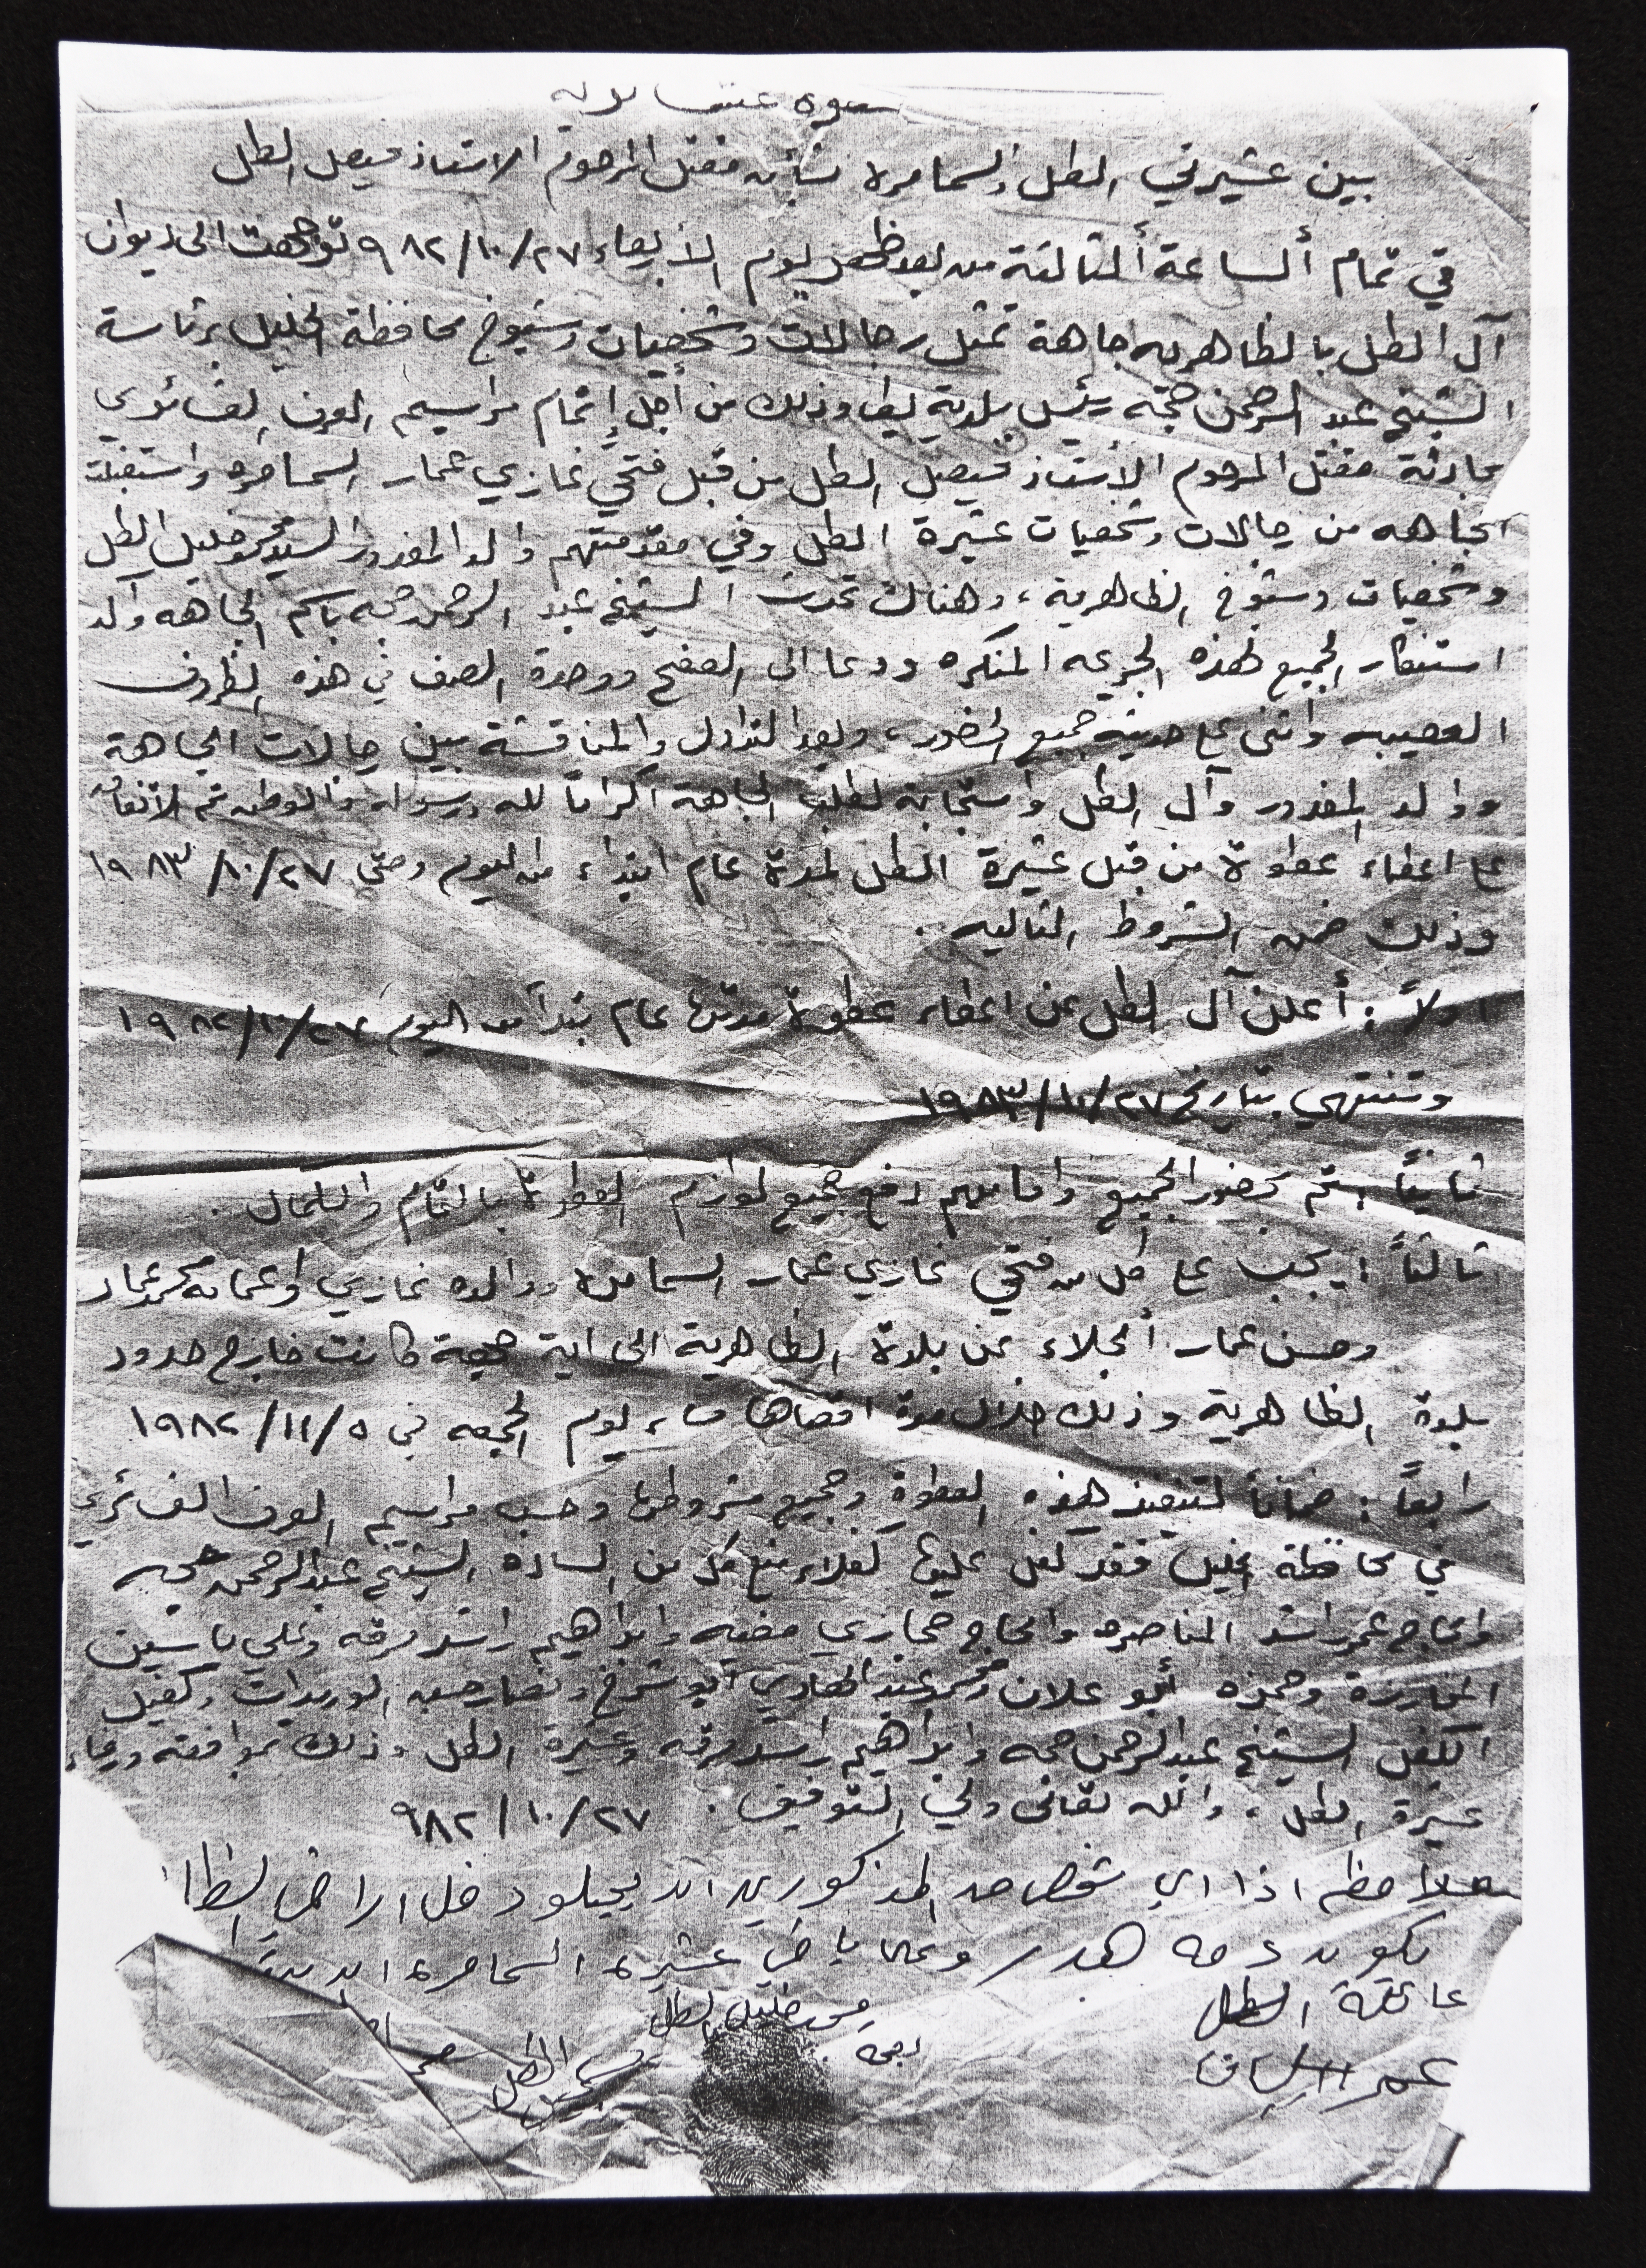 صورة عن
بين عشيرتي الطل والسمامرة بشأن مقتل المرحوم الاستاذ فيصل الطل
في تمام ألساعة ألثالثة من بعد ظهر يوم الأربعاء ٩٨٢/١٠/٢٧ توجهت الى ديوان
آل الطل بالظاهريه جاهة تمثل رجالات وشخصيات وشيوخ محافظة الخليل برئاسة
الشيخ عبد الرحمن حجه رئيس بلدية يطا وذلك من أجل إتمام مراسيم العرف العشائري
بحادثة مقتل المرحوم الأستاذ فيصل الطل من قبل فتحي غازي عمار السمامره واستقبلت
الجاهه من رجالات وشخصيات عشيرة الطل وفي مقدمتهم والد المغدور السيد محمد خليل الطل
وشخصيات وشيوخ الظاهرية، وهناك تحدث الشيخ عبد الرحمن حجه باسم الجاهه وأكد
استنكار الجميع لهذه الجريمه المنكره ودعا الى الصفح ووحدة الصف في هذه الظروف
العصيبه واثنى على حديثه جميع الحضور، وبعد التداول والمناقشة بين رجالات الجاهة
ووالد المغدور وآل الطل واستجابه لطلب الجاهة اكراماً لله ورسوله والوطن تم الأتفاق
على اعطاء عطوة من قبل عشيرة الطل لمدة عام ابتداء من اليوم وحتى ١٩٨٣/١٠/٢٧
وذلك ضمن الشروط التاليه .
اولاً : أعلن آل الطل عن اعطاء عطوة مدتها عام تبدأ من اليوم ١٩٨٢/١٠/٢٧
وتنتهي بتاريخ ١٩٨٣/١٠/٢٧
ثانياً : تم بحضور الجميع وامامهم دفع جميع لوازم العطوة بالتمام والكمال .
ثالثاً : يجب على كل من فتحي غازي عمار السمامرة ووالده غازي وأعمامه محمد عمار
وحسن عمار ألجلاء عن بلدة الظاهرية الى اية جهة كانت خارج حدود
بلدة الظاهرية وذلك خلال مدة اقصاها مساء يوم الجمعه في ١٩٨٢/١١/٥
رابعاً : ضماناً لتنفيذ هذه العطوة وجميع شروطها وحسب مراسيم العرف العشائري
في محافظة الخليل فقد كفل عليها كفلاء منع كل من الساده الشيخ عبد الرحمن حجه
والحاج عمر راشد المناصره والحاج حجازي وابراهيم راشد مرقه وعلي ياسين
وحمزه أبو علان ومحمد عبد الهادي أبو شرخ الوريدات وكفيل
الكفل الشيخ عبد الرحمن حجه وابراهيم راشد مرقه وعشيرة الطل وذلك بموافقة ورضاء
عشيرة الطل ، والله تعالى ولي التوفيق . ٩٨٢/١٠/٢٧
ملاحظه اذا اي شخص من المذكورين ان يجلو دخل اراضي
يكون دمه هدر وعلى عشيرة السمامره
عائلة الطل
محمد خليل الطل
بصمة
عمر
الطل